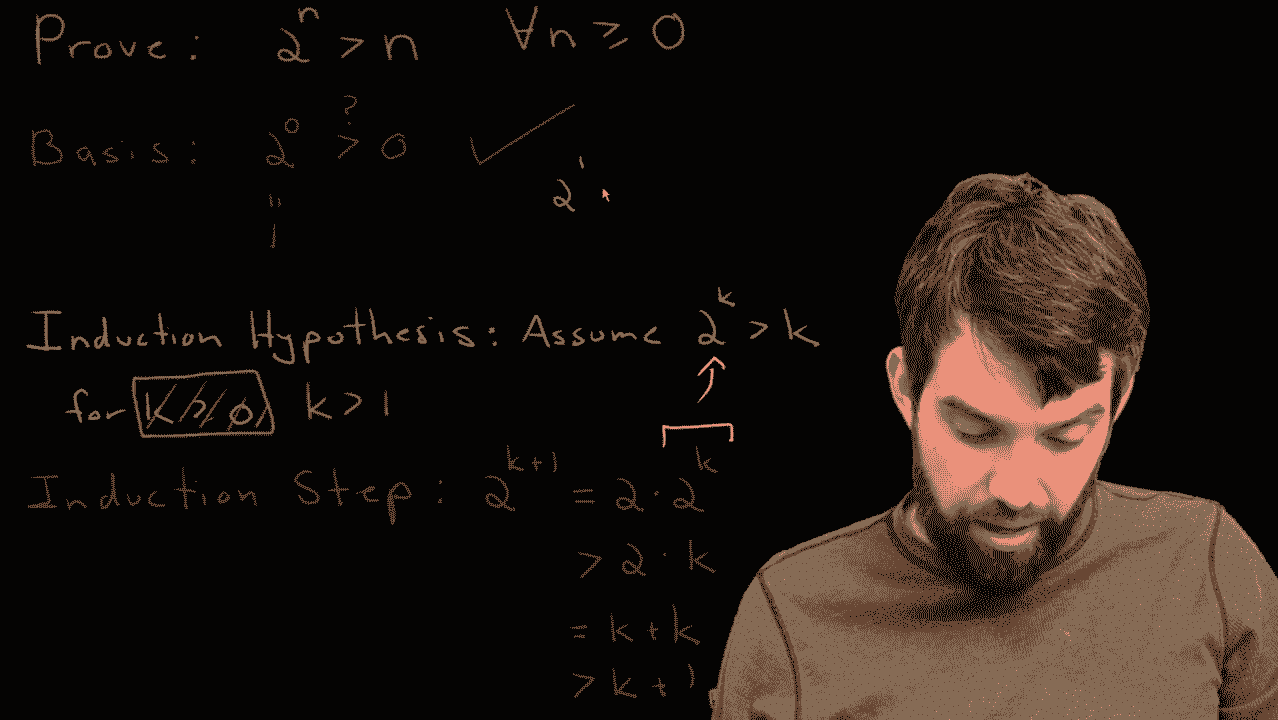 Prove: 2^n > n ∀n ≥ 0
Basis: 2^0 ?> 0 ✓
2^1
"
1
Induction Hypothesis: Assume 2^k > k
for k > 1
Induction Step: 2^(k+1) = 2·2^k
> 2·k
= k+k
> k+1